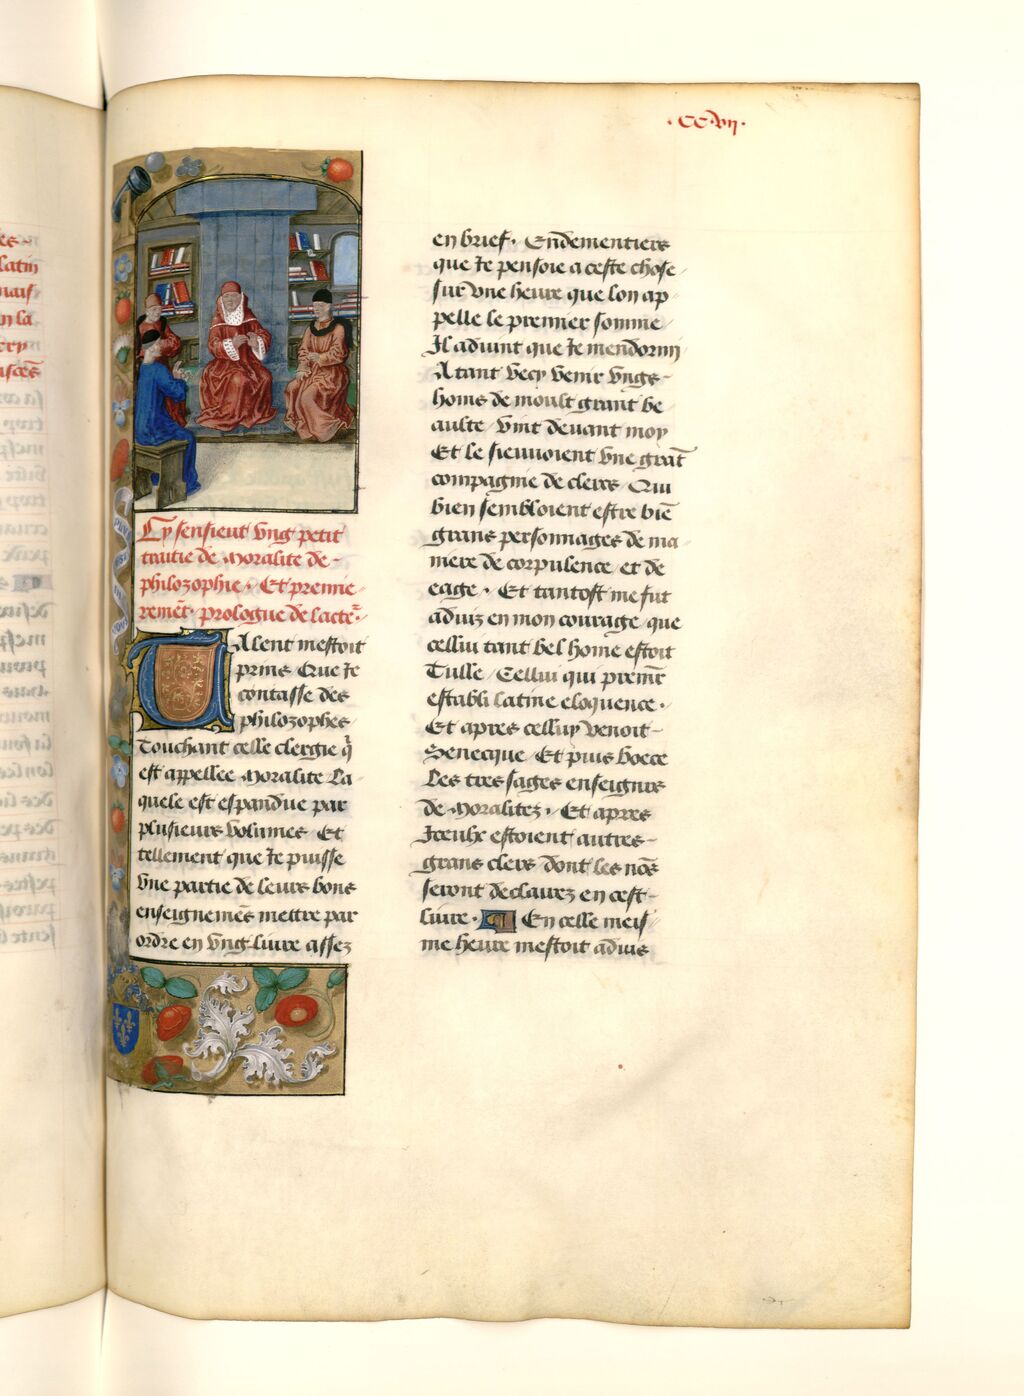 .CC.vij.
Cy sensieut vng petit
traitie de Moralite de-
philozophie. Et premie/
remẽt. prologue de lacteᷣ.
Talent mestoit
prins / Que Je
contasse des
philozophes
Touchant celle clergie q̃
est appellee Moralite La
quele est espandue par
plusieurs volumes / Et
tellement que Je puisse
vne partie de leurs bons
enseignemẽs mettre par
ordre en vng liure assez
en brief. Endementiers
que Je pensoie a ceste chose/
sur vne heure que lon ap/
pelle le premier somme/
Il aduint que Je mendormi
Atant vecy venir vngs-
homs de moult grant be
aulte / vint deuant moy
Et le sieuuoient vne grãt
compagnie de clers / Qui
bien sembloient estre biẽ
grans personnages de ma
niere de corpulence et de
eage. Et tantost me fut
aduiz en mon courage que
cellui tant bel home estoit
Tulle / Cellui qui premr̃
establi latine eloquence.
Et apres celluy venoit-
Senecque / Et puis boece
Les tres sages enseignrs
de Moralitez. Et apres
Jceulx estoient autres-
grans clers dont les nõs
seront declairez en cest-
liure. ¶ En celle meis/
me heure mestoit aduis